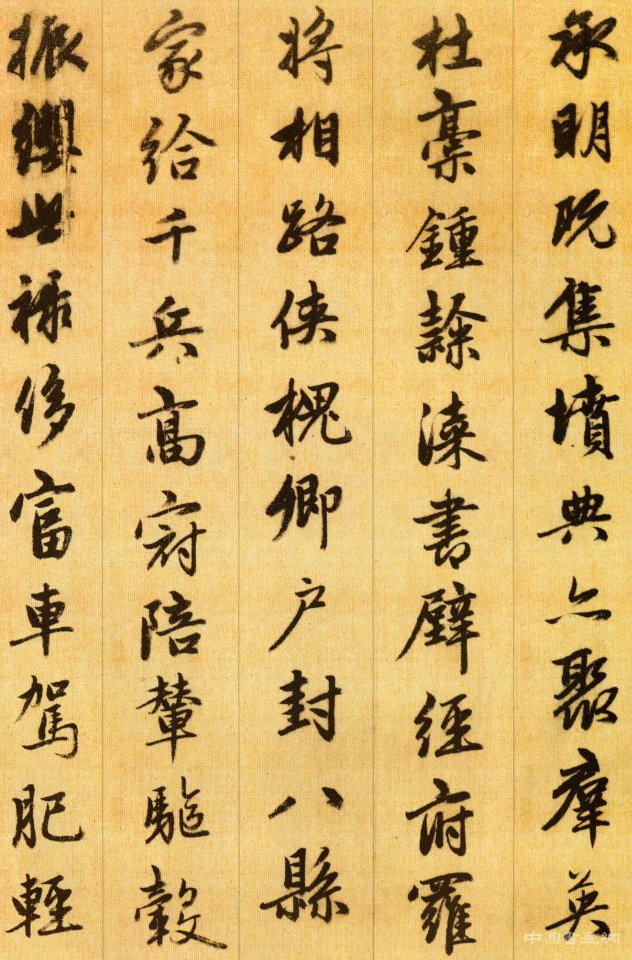 承明既集墳典亦聚羣英
杜稾鍾隸漆書壁經府羅
將相路俠槐卿户封八縣
家給千兵高冠陪輦驅轂
振纓世祿侈富車駕肥輕